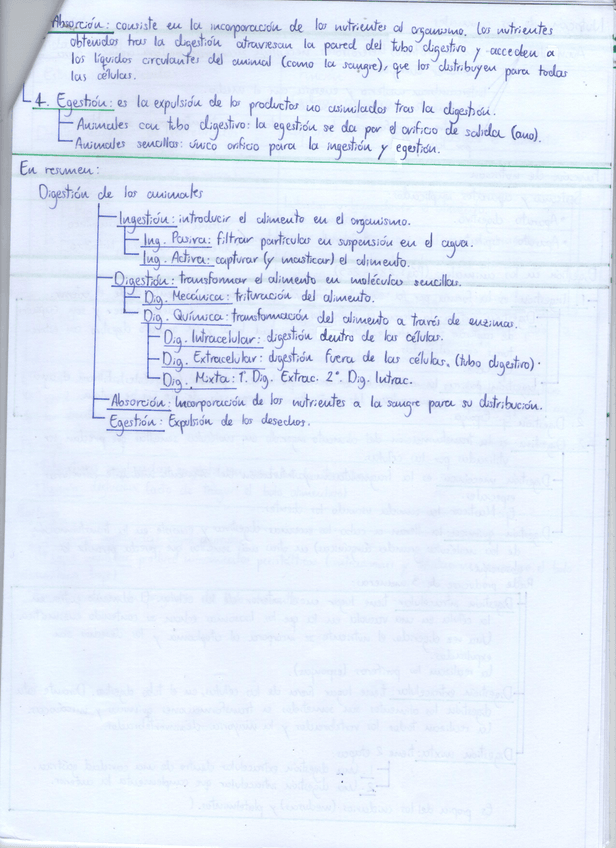 Absorción: consiste en la incorporación de los nutrientes al organismo. Los nutrientes
obtenidos tras la digestión atraviesan la pared del tubo digestivo y acceden a
los líquidos circulantes del animal (como la sangre), que los distribuyen para todas
las células.
4. Egestión: es la expulsión de los productos no asimilados tras la digestión.
Animales con tubo digestivo: la egestión se da por el orificio de salida (ano).
Animales sencillos: único orificio para la ingestión y egestión.
En resumen:
Digestión de los animales
Ingestión: introducir el alimento en el organismo.
Ing. Pasiva: filtrar partículas en suspensión en el agua.
Ing. Activa: capturar (y masticar) el alimento.
Digestión: transformar el alimento en moléculas sencillas.
Dig. Mecánica: trituración del alimento.
Dig. Química: transformación del alimento a través de enzimas.
Dig. Intracelular: digestión dentro de las células.
Dig. Extracelular: digestión fuera de las células. (tubo digestivo).
Dig. Mixta: 1º. Dig. Extrac. 2º. Dig. Intrac.
Absorción: Incorporación de los nutrientes a la sangre para su distribución.
Egestión: Expulsión de los desechos.